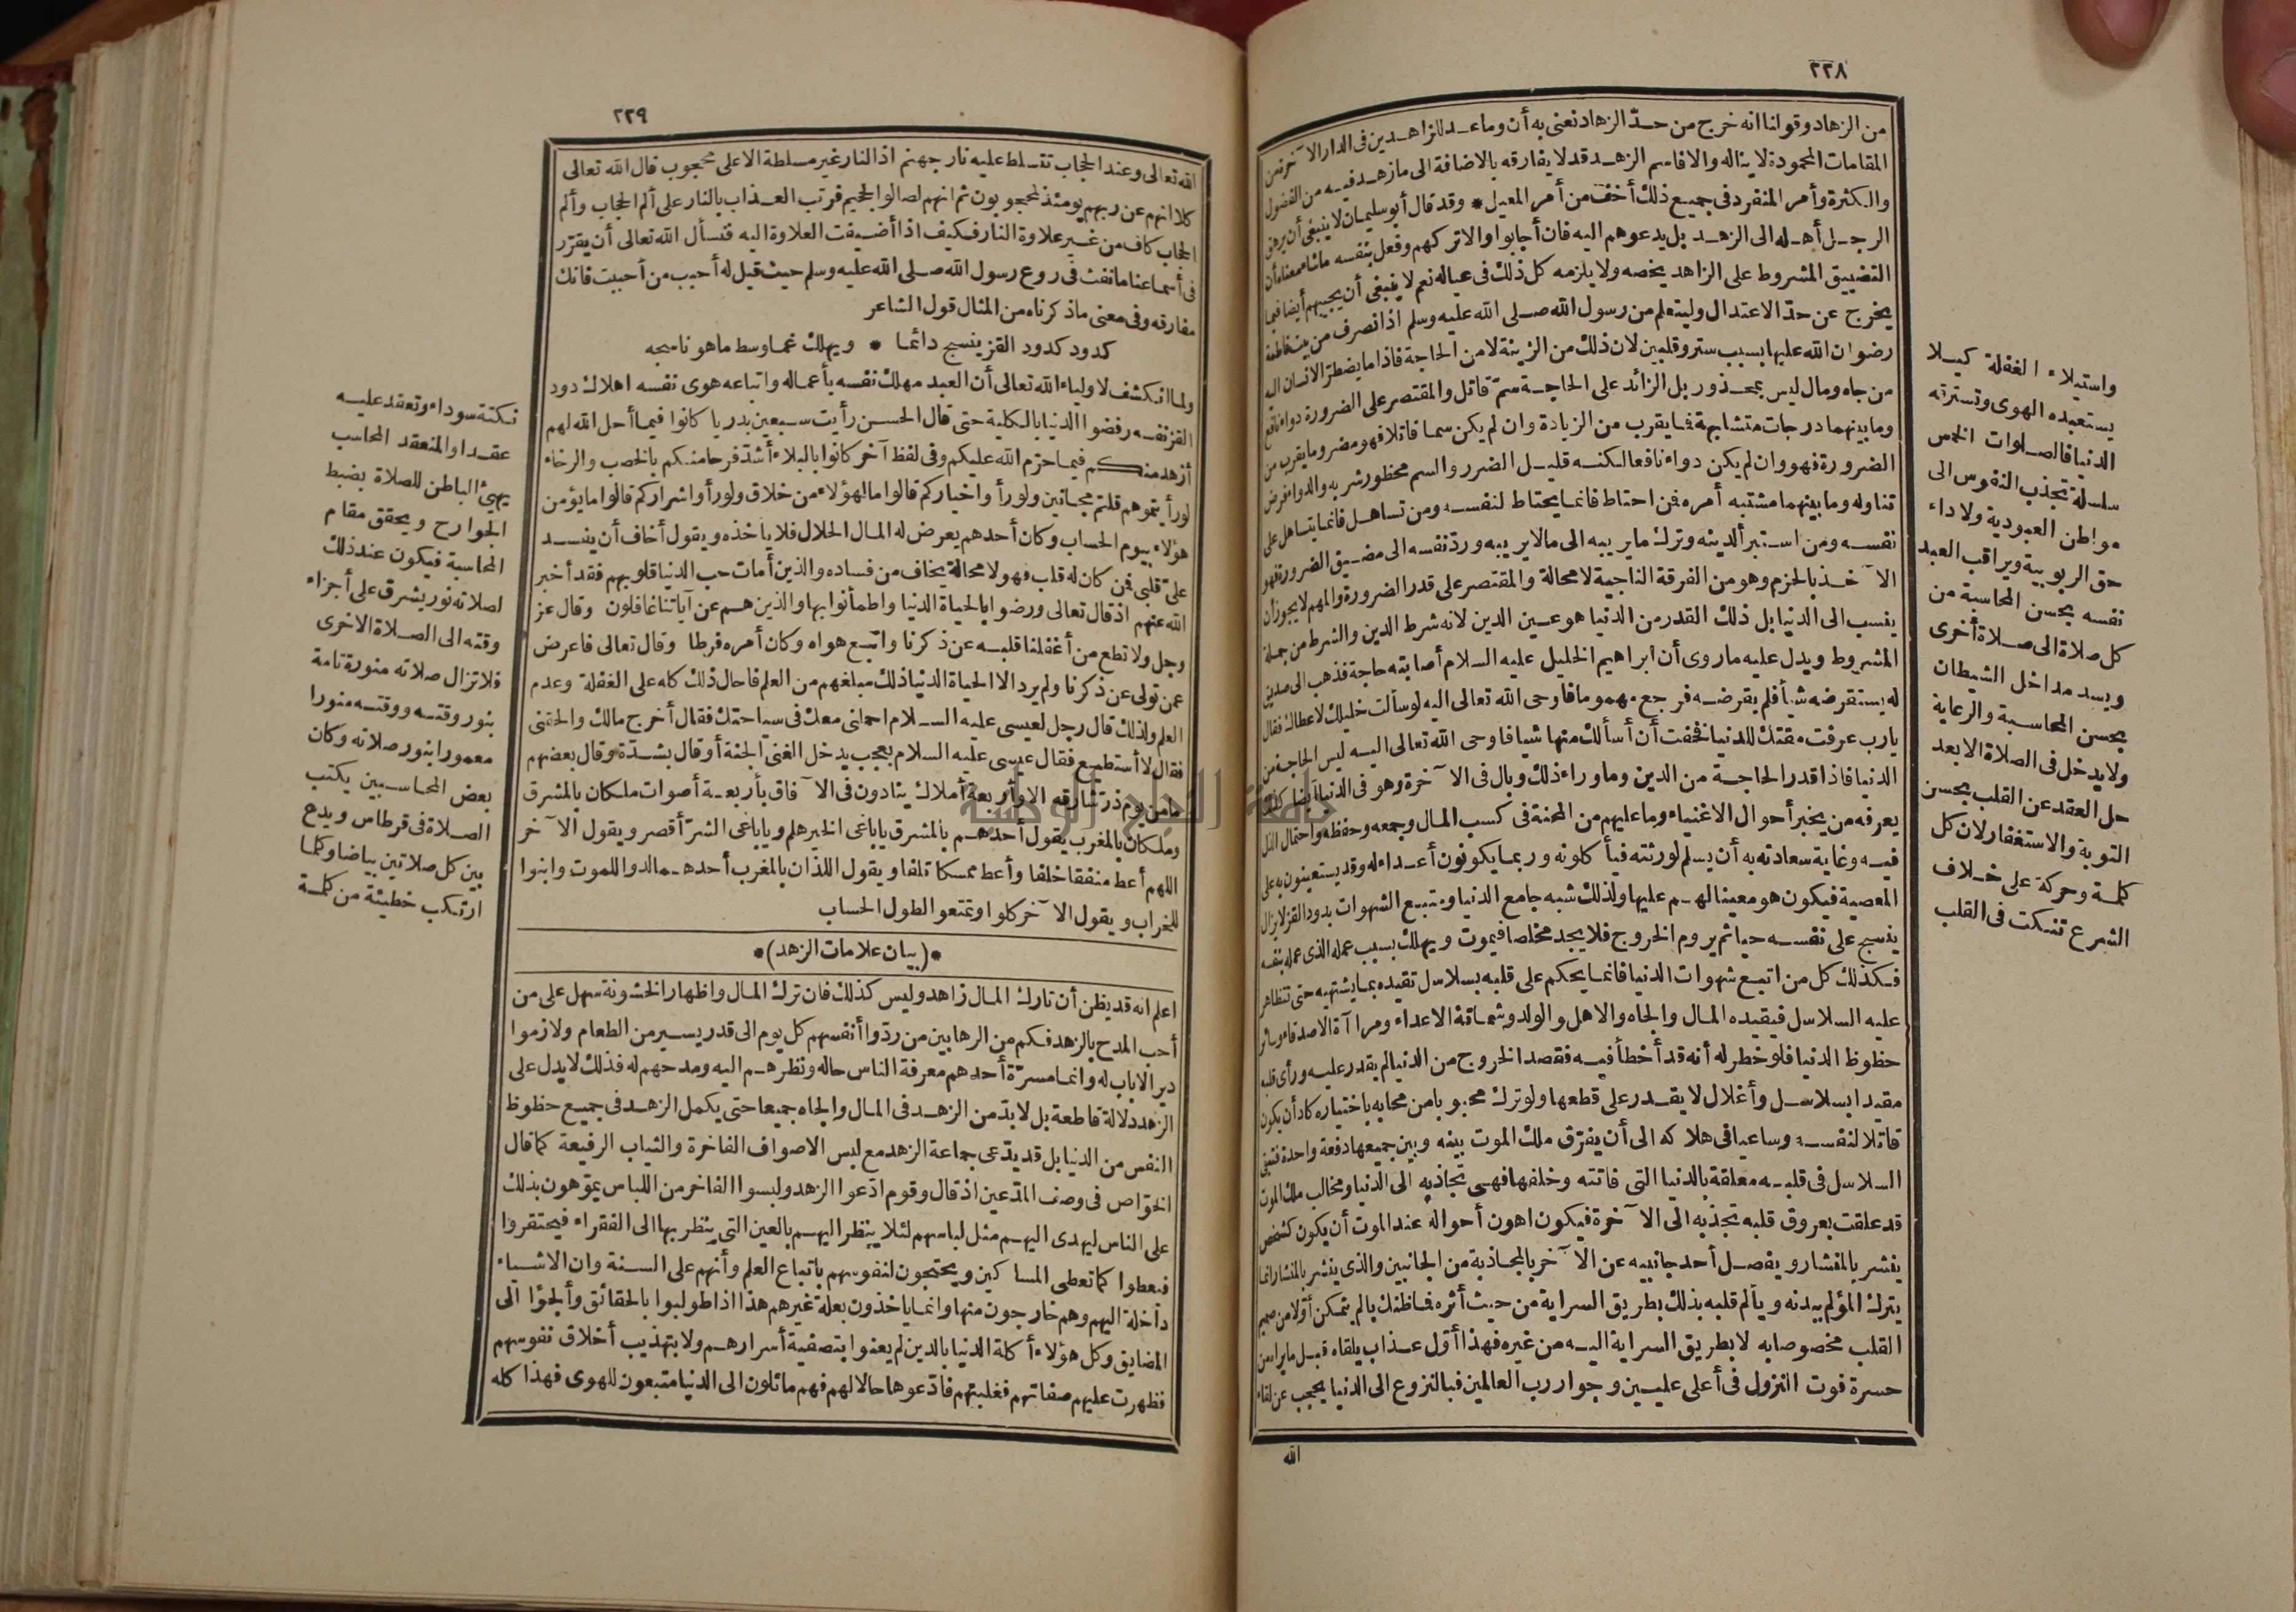 ٢٢٨
من الزهاد وقولنا انه خرج من حدّ الزهاد نعنى به أن وما عد للزاهدين فى الدار الآخرة من
المقامات المحمودة لا يناله والا فاسم الزهد قد لا يفارقه بالاضافة الى ما زهد فيه من الفضول
والكثرة وأمر المنفرد فى جميع ذلك أخف من أمر المعيل * وقد قال أبو سليمان لا ينبغى أن يرهق
الرجل أهله الى الزهد بل يدعوهم اليه فان أجابوا والا تركهم وفعل بنفسه ما شاء معناه أن
التضييق المشروط على الزاهد يخصه ولا يلزمه كل ذلك فى عياله نعم لا ينبغى أن يجيبهم أيضا فيما
يخرج عن حدّ الاعتدال وليتعلم من رسول الله صلى الله عليه وسلم اذ انصرف من بيت فاطمة
رضوان الله عليها بسبب ستر وقلبين لان ذلك من الزينة لا من الحاجة فاذا ما يضطرّ الانسان اليه
من جاه ومال ليس بمحذور بل الزائد على الحاجة سمّ قاتل والمقتصر على الضرورة دواء نافع
وما بينهما درجات متشابهة فما يقرب من الزيادة وان لم يكن سما قاتلا فهو مضر وما يقرب من
الضرورة فهو وان لم يكن دواء نافعا لكنه قليل الضرر والسم محظور شربه والدواء فرض
تناوله وما بينهما مشتبه أمره فمن احتاط فانما يحتاط لنفسه ومن تساهل فانما يتساهل على
نفسه ومن استبرأ لدينه وترك ما يريبه الى ما لا يريبه وردّ نفسه الى مضيق الضرورة فهو
الآخذ بالحزم وهو من الفرقة الناجية لا محالة والمقتصر على قدر الضرورة والمهم لا يجوز أن
ينسب الى الدنيا بل ذلك القدر من الدنيا هو عين الدين لانه شرط الدين والشرط من جملة
المشروط ويدل عليه ما روى أن ابراهيم الخليل عليه السلام أصابته حاجة فذهب الى صديق
له يستقرضه شيأ فلم يقرضه فرجع مهموما فاوحى الله تعالى اليه لو سألت خليلك لاعطاك فقال
يارب عرفت مقتك للدنيا فخفت أن أسألك منها شيأ فاوحى الله تعالى اليه ليس الحاجة من
الدنيا فاذا قدر الحاجة من الدين وما وراء ذلك وبال فى الآخرة وهو فى الدنيا أيضا كذلك
يعرفه من يخبر أحوال الاغنياء وما عليهم من المحنة فى كسب المال وجمعه وحفظه واحتمال الذل
فيه وغاية سعادته به أن يسلم لورثته فيأكلونه وربما يكونون أعداء له وقد يستعينون به على
المعصية فيكون هو معينا لهم عليها ولذلك شبه جامع الدنيا ومتبع الشهوات بدود القز لا يزال
ينسج على نفسه حيا ثم يروم الخروج فلا يجد مخلصا فيموت ويهلك بسبب عمله الذى عمله بنفسه
فكذلك كل من اتبع شهوات الدنيا فانما يحكم على قلبه بسلاسل تقيده بما يشتهيه حتى تتظاهر
عليه السلاسل فيقيده المال والجاه والاهل والولد وشماتة الاعداء ومراآة الاصدقاء وسائر
حظوظ الدنيا فلو خطر له أنه قد أخطأ فيه فقصد الخروج من الدنيا لم يقدر عليه ورأى قلبه
مقيدا بسلاسل وأغلال لا يقدر على قطعها ولو ترك محبوبا من محابه باختياره كاد أن يكون
قاتلا لنفسه وساعيا فى هلاكه الى أن يفرّق ملك الموت بينه وبين جميعها دفعة واحدة فتبقى
السلاسل فى قلبه معلقة بالدنيا التى فاتته وخلفها فهى تجاذبه الى الدنيا ومخالب ملك الموت
قد علقت بعروق قلبه تجذبه الى الآخرة فيكون اهون أحواله عند الموت أن يكون كشخص
ينشر بالمنشار ويفصل أحد جانبيه عن الآخر بالمجاذبة من الجانبين والذى ينشر بالمنشار انما
يترك المؤلم ببدنه ويألم قلبه بذلك بطريق السراية من حيث أثره فما ظنك بالم يتمكن أوّلا من صميم
القلب مخصوصا به لا بطريق السراية اليه من غيره فهذا أوّل عذاب يلقاه قبل ما يراه من
حسرة فوت النزول فى أعلى عليين وجوار رب العالمين فبالنزوع الى الدنيا يحجب عن لقاء
الله
واستيلاء الغفلة كيلا
يستعبده الهوى وتسترقه
الدنيا فالصلوات الخمس
سلسلة تجذب النفوس الى
مواطن العبودية ولاداء
حق الربوبية ويراقب العبد
نفسه بحسن المحاسبة من
كل صلاة الى صلاة أخرى
ويسد مداخل الشيطان
بحسن المحاسبة والرعاية
ولا يدخل فى الصلاة الا بعد
حل العقد عن القلب بحسن
التوبة والاستغفار لان كل
كلمة وحركة على خلاف
الشرع تنكت فى القلب
٢٢٩
الله تعالى وعند الحجاب تتسلط عليه نار جهنم اذ النار غير مسلطة الا على محجوب قال الله تعالى
كلا انهم عن ربهم يومئذ لمحجوبون ثم انهم لصالوا الجحيم فرتب العذاب بالنار على ألم الحجاب وألم
الحجاب كاف من غير علاوة النار فكيف اذا أضيفت العلاوة اليه فنسأل الله تعالى أن يقرّر
فى أسماعنا ما نفث فى روع رسول الله صلى الله عليه وسلم حيث قيل له أحبب من أحببت فانك
مفارقه وفى معنى ما ذكرناه من المثال قول الشاعر
كدود كدود القز ينسج دائما * ويهلك غما وسط ما هو ناسجه
ولما انكشف لاولياء الله تعالى أن العبد مهلك نفسه بأعماله واتباعه هوى نفسه اهلاك دود
القز نفسه رفضوا الدنيا بالكلية حتى قال الحسن رأيت سبعين بدريا كانوا فيما أحل الله لهم
أزهد منكم فيما حرّم الله عليكم وفى لفظ آخر كانوا بالبلاء أشدّ فرحا منكم بالخصب والرخاء
لو رأيتموهم قلتم مجانين ولو رأوا خياركم قالوا ما لهؤلاء من خلاق ولو رأوا شراركم قالوا ما يؤمن
هؤلاء بيوم الحساب وكان أحدهم يعرض له المال الحلال فلا يأخذه ويقول أخاف أن يفسد
علىّ قلبى فمن كان له قلب فهو لا محالة يخاف من فساده والذين أمات حب الدنيا قلوبهم فقد أخبر
الله عنهم اذ قال تعالى ورضوا بالحياة الدنيا واطمأنوا بها والذين هم عن آياتنا غافلون وقال عز
وجل ولا تطع من أغفلنا قلبه عن ذكرنا واتبع هواه وكان أمره فرطا وقال تعالى فاعرض
عمن تولى عن ذكرنا ولم يرد الا الحياة الدنيا ذلك مبلغهم من العلم فاحال ذلك كله على الغفلة وعدم
العلم ولذلك قال رجل لعيسى عليه السلام احملنى معك فى سياحتك فقال أخرج مالك والحقنى
فقال لا أستطيع فقال عيسى عليه السلام بعجب يدخل الغنىّ الجنة أو قال بشدّة وقال بعضهم
ما من يوم ذرّ شارقه الا وأربعة أملاك ينادون فى الآفاق بأربعة أصوات ملكان بالمشرق
وملكان بالمغرب يقول أحدهم بالمشرق يا باغى الخير هلم ويا باغى الشرّ أقصر ويقول الآخر
اللهم أعط منفقا خلفا وأعط ممسكا تلفا ويقول اللذان بالمغرب أحدهما لدوا للموت وابنوا
للخراب ويقول الآخر كلوا وتمتعوا لطول الحساب
*(بيان علامات الزهد)*
اعلم انه قد يظن أن تارك المال زاهد وليس كذلك فان ترك المال واظهار الخشونة سهل على من
أحب المدح بالزهد فكم من الرهابين من ردّوا أنفسهم كل يوم الى قدر يسير من الطعام ولازموا
دير الا باب له وانما مسرّة أحدهم معرفة الناس حاله ونظرهم اليه ومدحهم له فذلك لا يدل على
الزهد دلالة قاطعة بل لا بدّ من الزهد فى المال والجاه جميعا حتى يكمل الزهد فى جميع حظوظ
النفس من الدنيا بل قد يدّعى جماعة الزهد مع لبس الاصواف الفاخرة والثياب الرفيعة كما قال
الخوّاص فى وصف المدّعين اذ قال وقوم ادّعوا الزهد ولبسوا الفاخر من اللباس يموّهون بذلك
على الناس ليهدى اليهم مثل لباسهم لئلا ينظر اليهم بالعين التى ينظر بها الى الفقراء فيحتقروا
فيعطوا كما تعطى المساكين ويحتجون لنفوسهم باتباع العلم وأنهم على السنة وان الاشياء
داخلة اليهم وهم خارجون منها وانما يأخذون بعلة غيرهم هذا اذا طولبوا بالحقائق وألجؤا الى
المضايق وكل هؤلاء أكلة الدنيا بالدين لم يعنوا بتصفية أسرارهم ولا بتهذيب أخلاق نفوسهم
فظهرت عليهم صفاتهم فغلبتهم فادّعوها حالا لهم فهم مائلون الى الدنيا متبعون للهوى فهذا كله
نكتة سوداء وتعقد عليه
عقدا والمتعقد المحاسب
يهيئ الباطن للصلاة بضبط
الجوارح ويحقق مقام
المحاسبة فيكون عند ذلك
لصلاته نور يشرق على أجزاء
وقته الى الصلاة الاخرى
فلا تزال صلاته منورة تامة
بنور وقته ووقته منورا
معمورا بنور صلاته وكان
بعض المحاسبين يكتب
الصلاة فى قرطاس ويدع
بين كل صلاتين بياضا وكلما
ارتكب خطيئة من كلمة
جامعة النجاح الوطنية